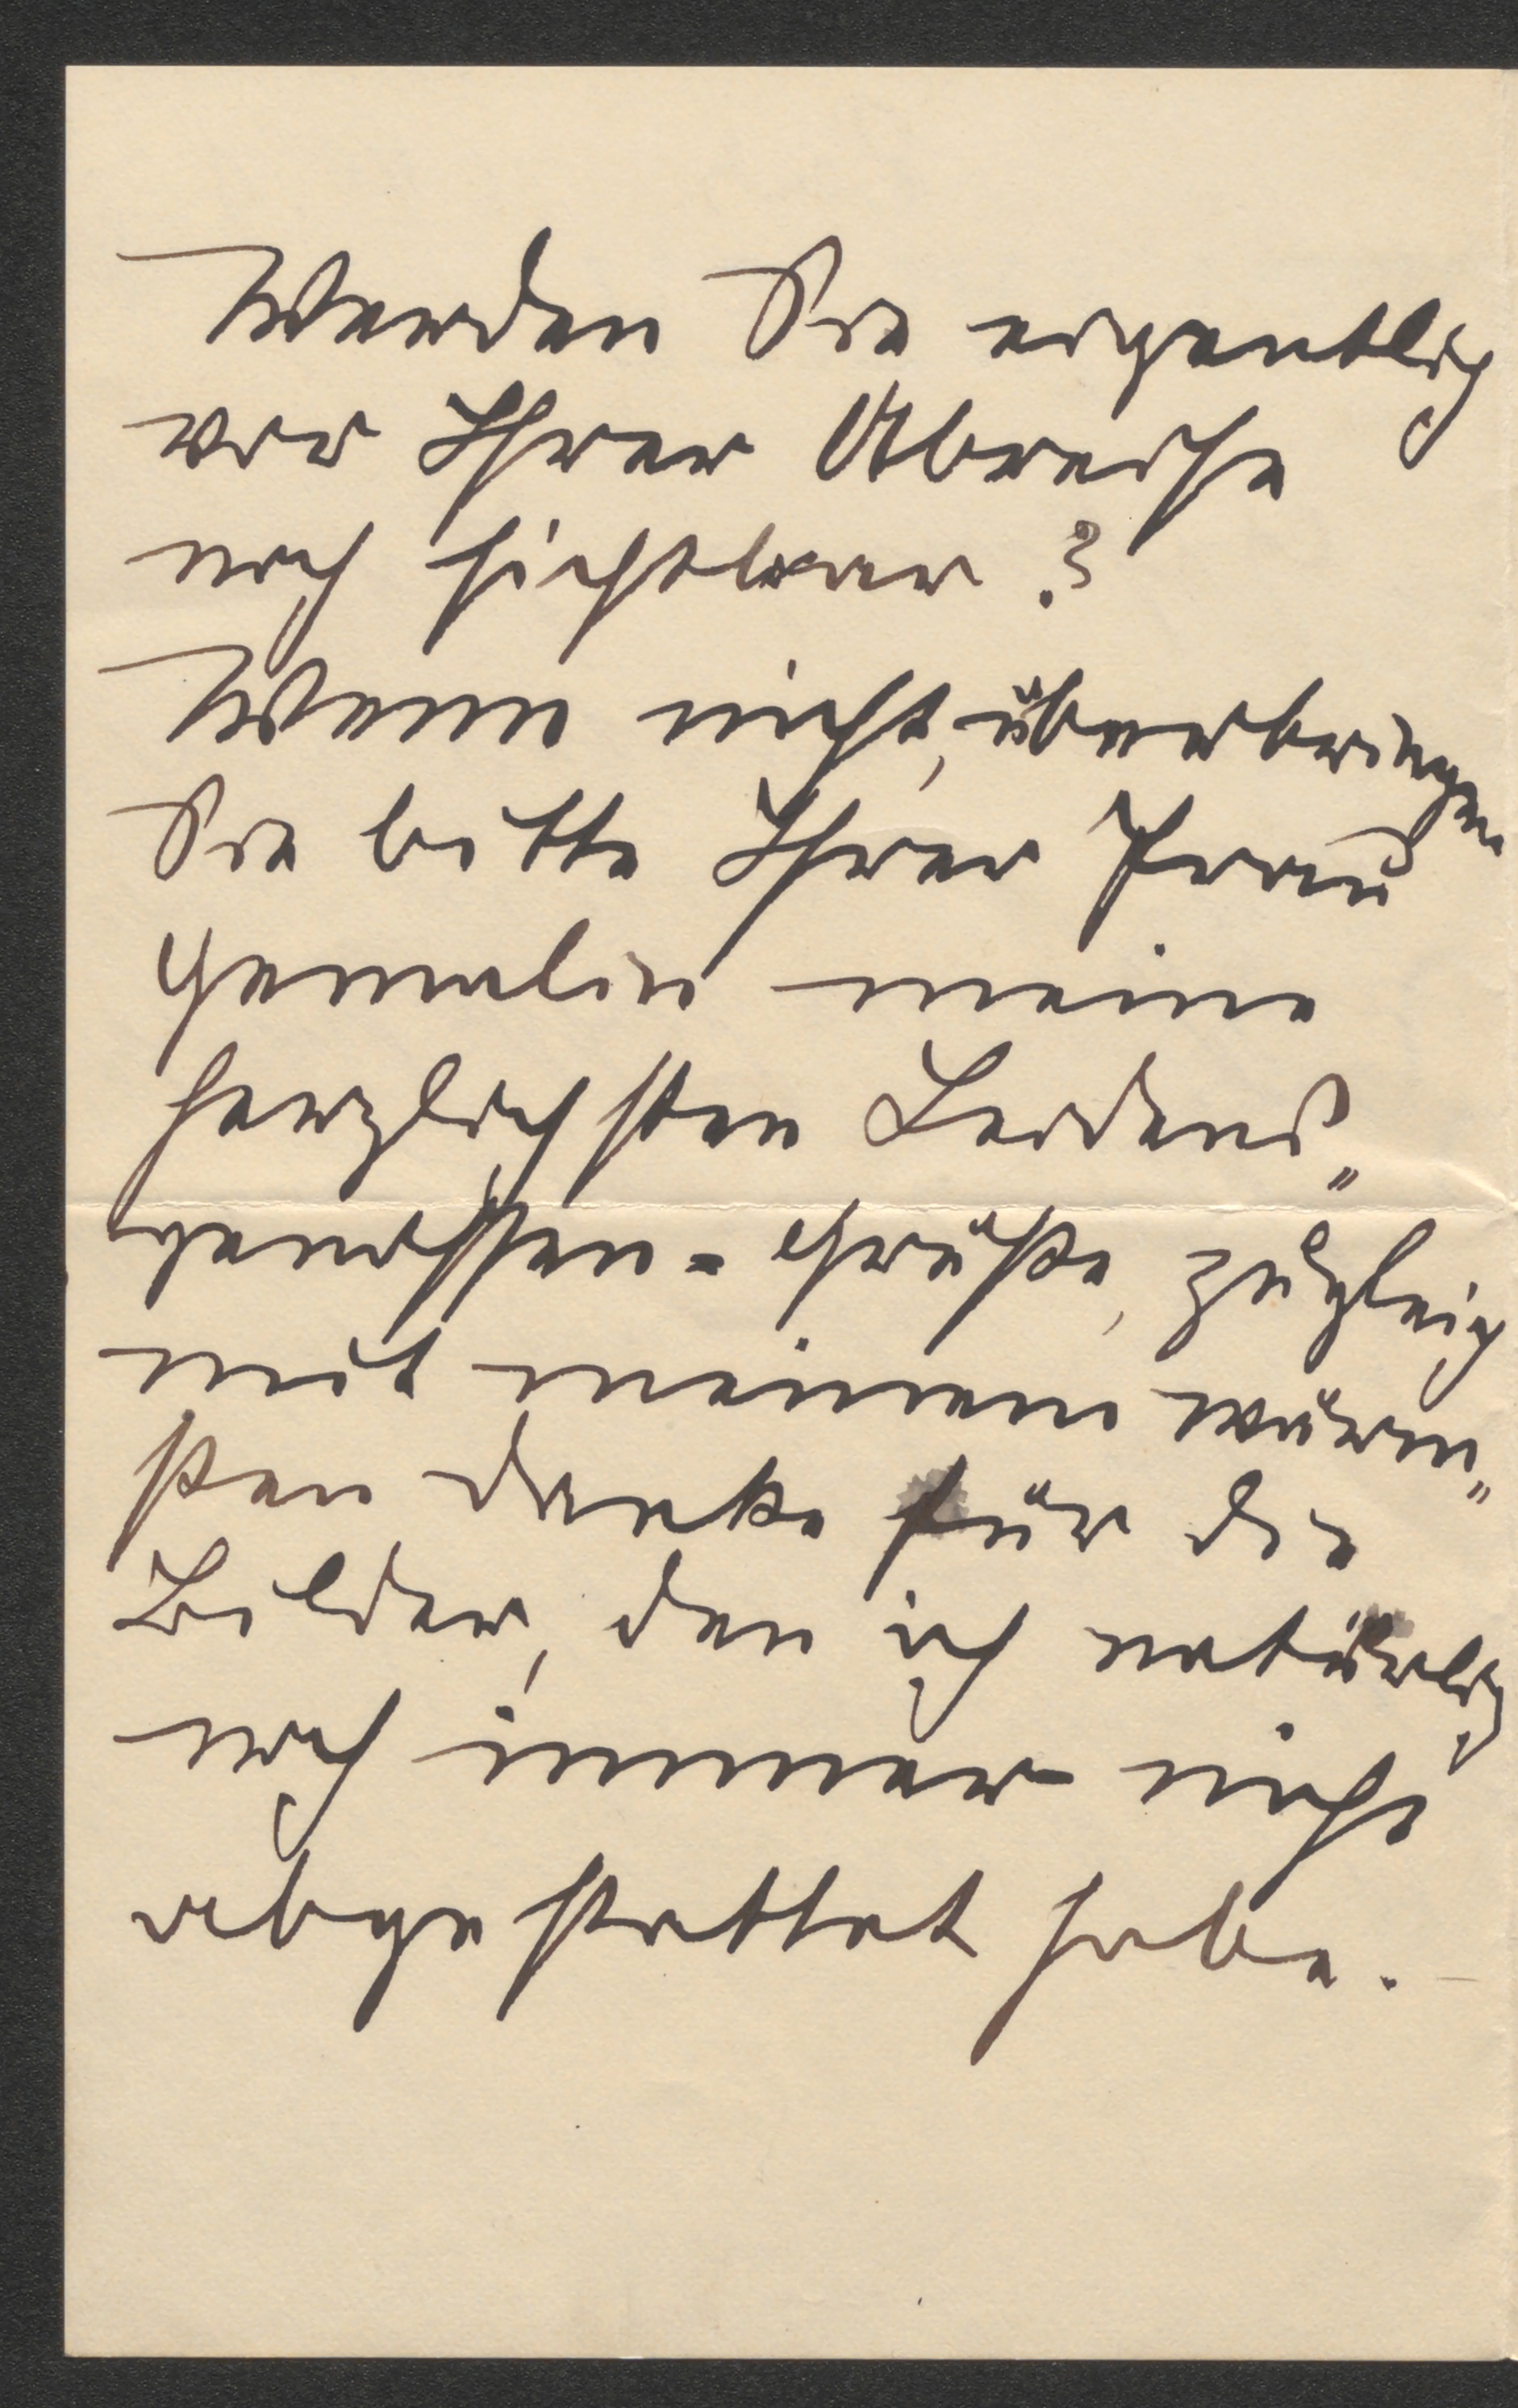 Werden Sie eigentlich
vor Ihrer Abreise
noch sichtbar?
Wenn nicht, überbringen
Sie bitte Ihrer Frau
Gemalin meine
herzlichsten Leidens"
genossen-Grüße, zugleich
mit meinem wärm"
sten Danke für die
Bilder, den ich natürlich
noch immer nicht
abgestattet habe. –